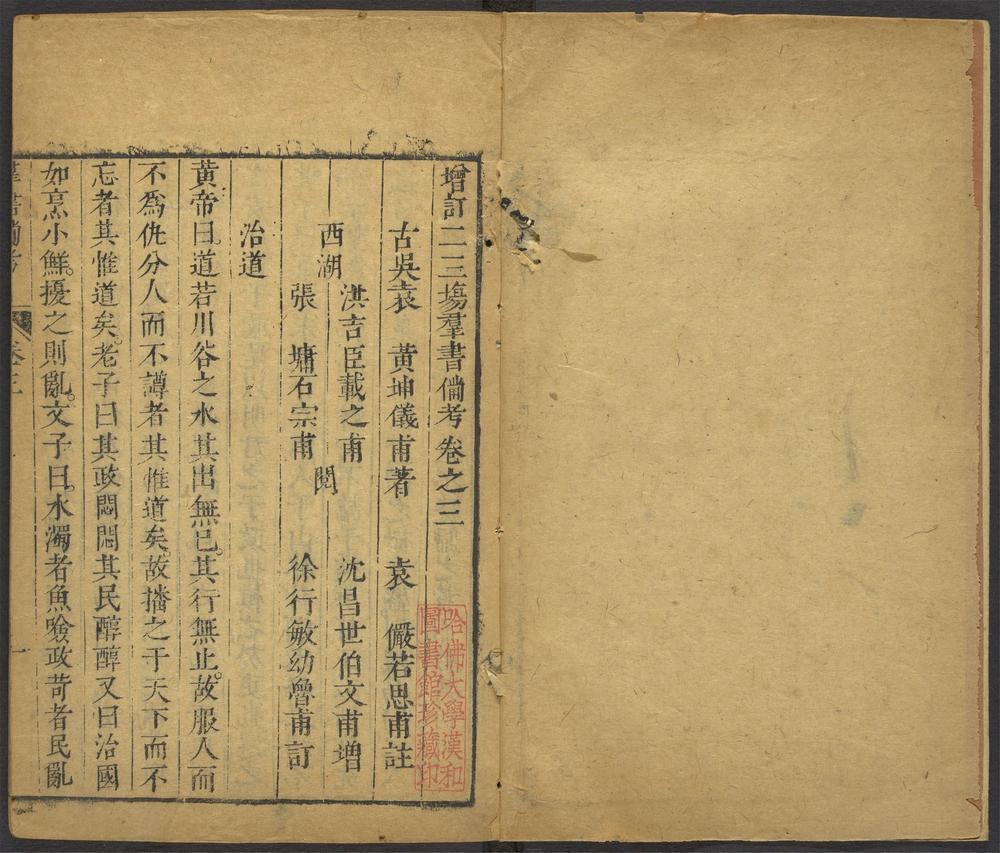 增訂二三塲羣書備考卷之三
古吳袁　黃坤儀甫著　袁　儼若思甫註
洪吉臣載之甫　沈昌世伯文甫增
西湖　閱
張　墉石宗甫　徐行敏幼魯甫訂
治道
黃帝曰道若川谷之水其出無已其行無止故服人而
不爲仇分人而不譐者其惟道矣故播之于天下而不
忘者其惟道矣老子曰其政悶悶其民醇醇又曰治國
如烹小鮮擾之則亂文子曰水濁者魚噞政苛者民亂
羣書備考
卷三
一
哈佛大學漢和
圖書館珍藏印